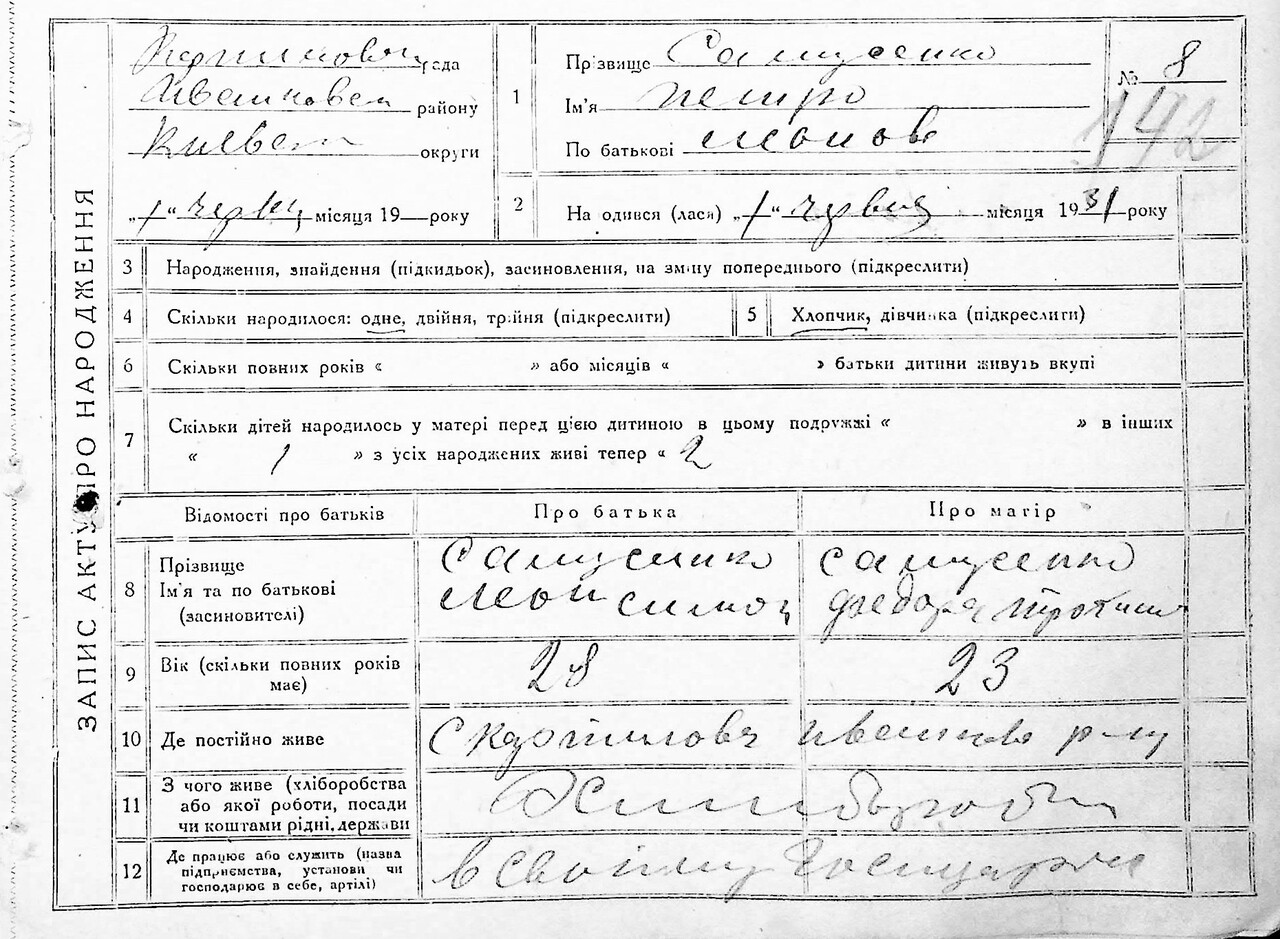 ЗАПИС АКТУ ПРО НАРОДЖЕННЯ
рада
району
округи
„1“ червц місяця 19 року
1
Прізвище Самусенко
Ім'я Петро
По батькові Леонов
№ 8
142
2
На одився (лася) „1“ червня місяця 1931 року
3 Народження, знайдення (підкидьок), засиновлення, на зміну попереднього (підкреслити)
4 Скільки народилося: одне, двійня, трійня (підкреслити)
5 Хлопчик, дівчинка (підкреслити)
6 Скільки повних років « » або місяців « » батьки дитини живуть вкупі
7 Скільки дітей народилось у матері перед цією дитиною в цьому подружжі « » в інших
« 1 » з усіх народжених живі тепер « 2
Відомості про батьків
Про батька
Про матір
8
Прізвище
Ім'я та по батькові
(засиновителі)
Самусенко
Леон Симон
Самусенко
Федора
9
Вік (скільки повних років
має)
28
23
10 Де постійно живе
с Карпиловч
р-ну
11
З чого живе (хліборобства
або якої роботи, посади
чи коштами рідні, держави
Хлібороб
12
Де працює або служить (назва
підприємства, установи чи
господарює в себе, артілі)
в своїму господарстві